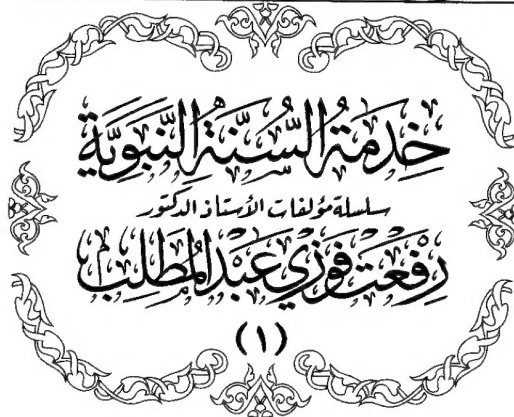 خِدْمَةُ السُّنَّةِ النَّبَوِيَّةِ
سلسلة مؤلفات الأستاذ الدكتور
رِفْعَت فَوْزِي عَبْدِ الْمُطَّلِب
(١)